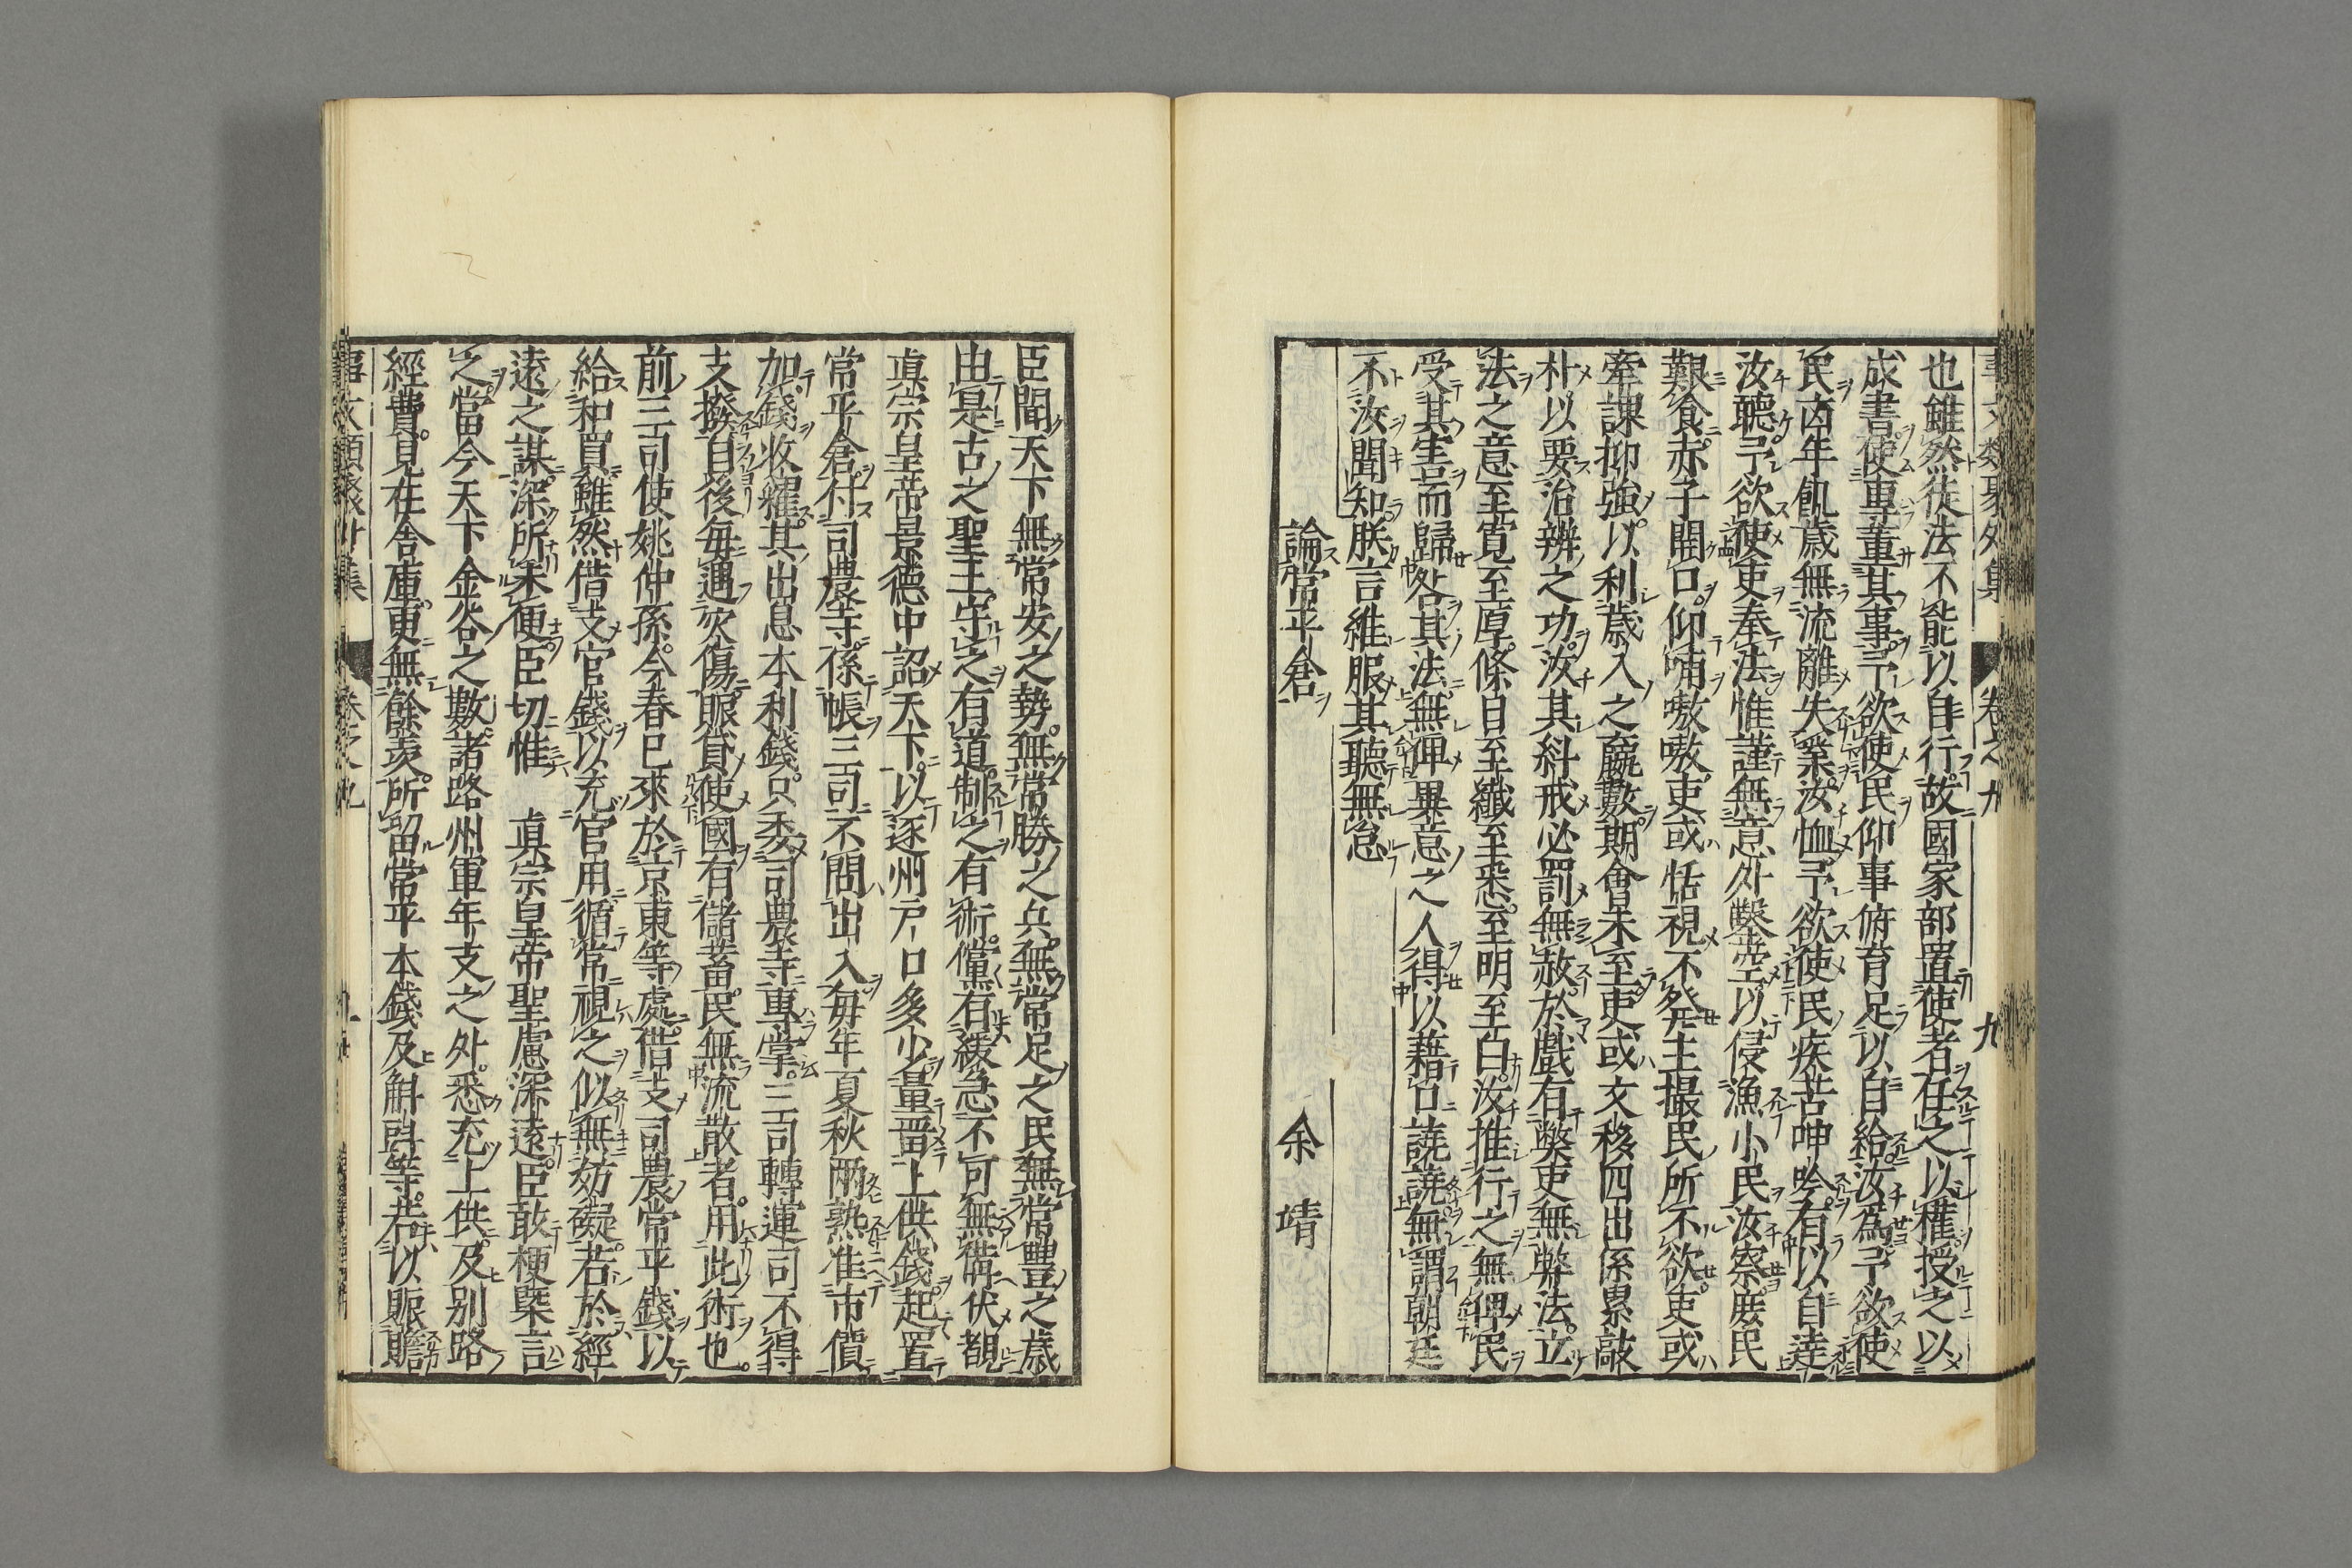 事文類聚外集 卷之九 九
也雖然徒法不能以自行故國家部置使者在之以權授之以
成書使專董其事予欲使民仰事俯育足以自給汝為予欲使
民凶年飢歲無流離失業汝恤予欲使民疾苦呻吟有以自達
汝聽予欲使吏奉法惟謹無意外鑿空以侵漁小民汝察庶民
艱食赤子開口仰哺嗷嗷吏或恬視不發主撮民所不欲吏或
牽課抑強以利歲入之贏數期會未至吏或文移四出係累敲
朴以要治辨之功汝其糾戒必罰無赦於戲有弊吏無弊法立
法之意至寬至厚條目至纖至悉至明至白汝推行之無俾民
受其害而歸咎其法無俾異意之人得以藉口譊譊無謂朝廷
不汝聞知朕言維服其聽無怠
論常平倉 余靖
臣聞天下無常安之勢無常勝之兵無常足之民無常豐之歲
由是古之聖王守之有道制之有術儻有緩急不可無備伏覩
真宗皇帝景德中詔天下以逐州戶口多少量畱上供錢起置
常平倉付司農寺係帳三司不問出入每年夏秋兩熟准市價
加錢收糴其出息本利錢只委司農寺專掌三司轉運司不得
支撥自後每遇灾傷賑貸使國有儲蓄民無流散者用此術也
前三司使姚仲孫今春已來於京東等處借支司農常平錢以
給和買雖然借支官錢以充官用循常視之似無妨礙若於經
遠之謀深所未便臣切惟 真宗皇帝聖慮深遠臣敢梗槩言
之當今天下金谷之數諸路州軍年支之外悉充上供及別路
經費見在倉庫更無餘羨所畱常平本錢及斛㪷等若以賑贍
事文類聚外集 卷之九